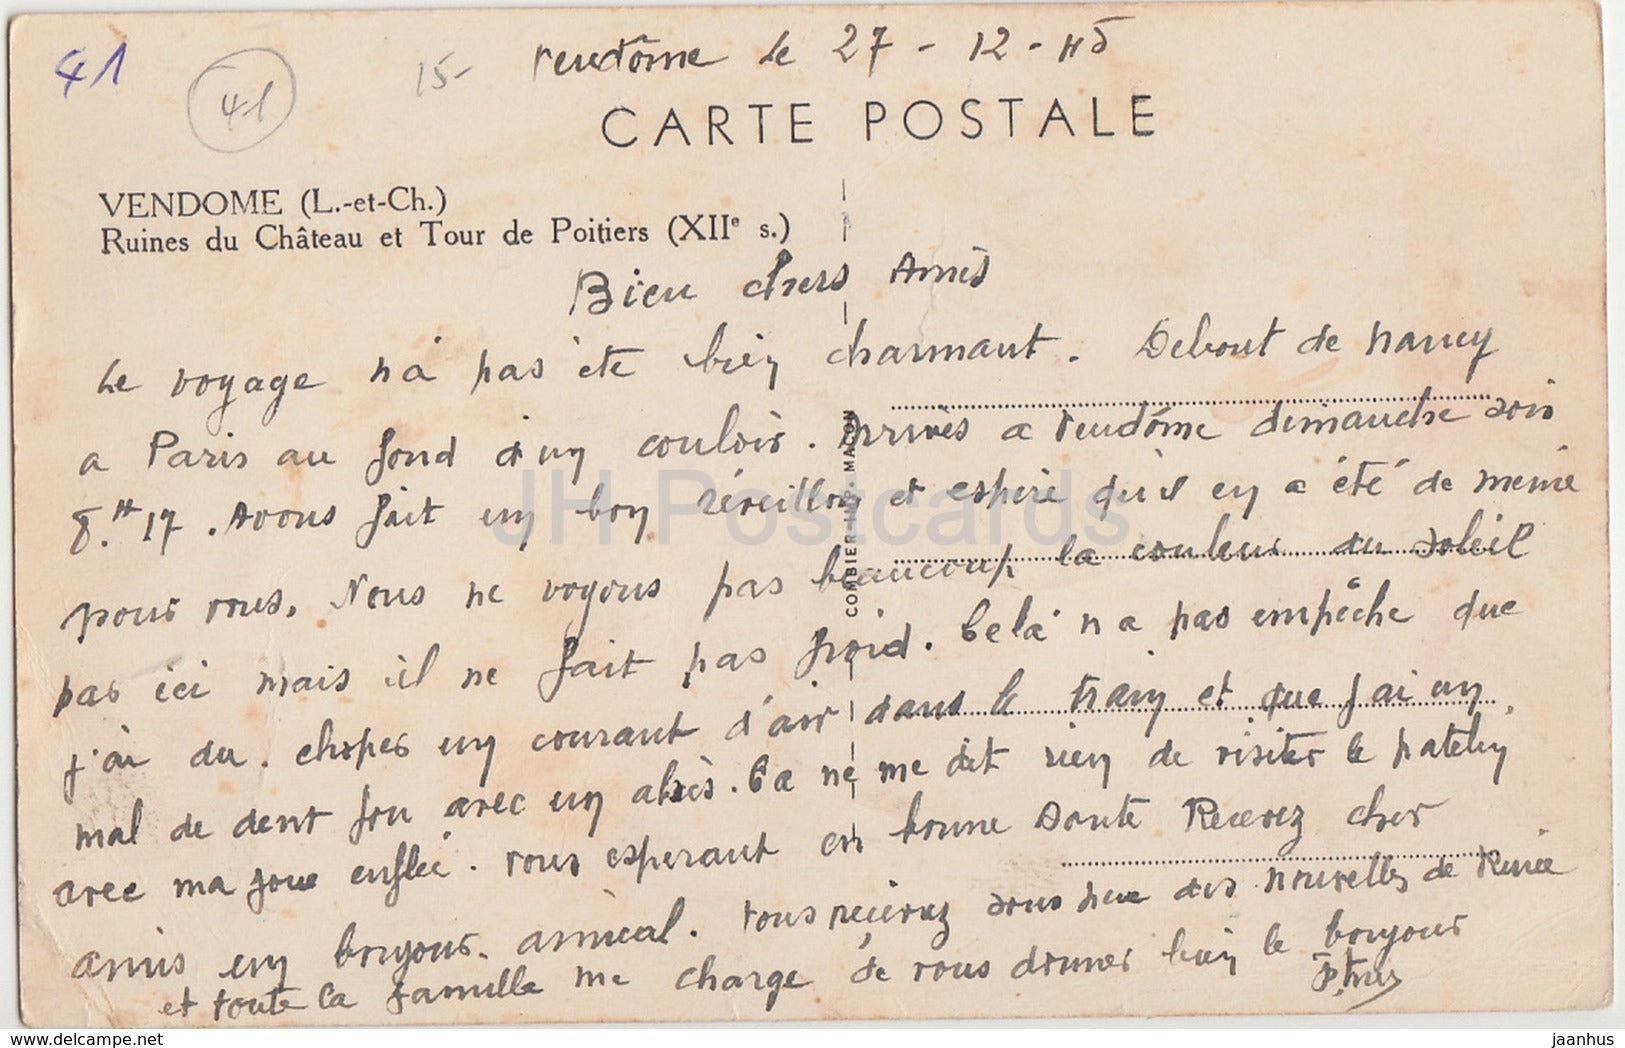 41
41
15-
Vendôme le 27 - 12 - 45
CARTE POSTALE
VENDOME (L.-et-Ch.)
Ruines du Château et Tour de Poitiers (XIIe s.)
Bien chers Amis
Le voyage n'a pas été bien charmant. Debout de Nancy
a Paris au fond d'un couloir. Arrivés a Vendôme dimanche soir
8.H 17. Avons fait un bon réveillon et espère qu'il en a été de même
pour vous. Nous ne voyons pas beaucoup la couleur du soleil
par ici mais il ne fait pas froid. Celà n'a pas empêche que
j'ai du choper un courant d'air dans le train et que j'ai un
mal de dent fou avec un abcès. Ca ne me dit rien de visiter le patelin
avec ma joue enflée. Vous esperant en bonne Santé Recevez cher
amis un bonjour amical. Vous recevrez sous peu des nouvelles de Renée
et toute la famille me charge de vous donner bien le bonjour
COMBIER IMP. MACON
JH Postcards
delcampe.net
jaanhus